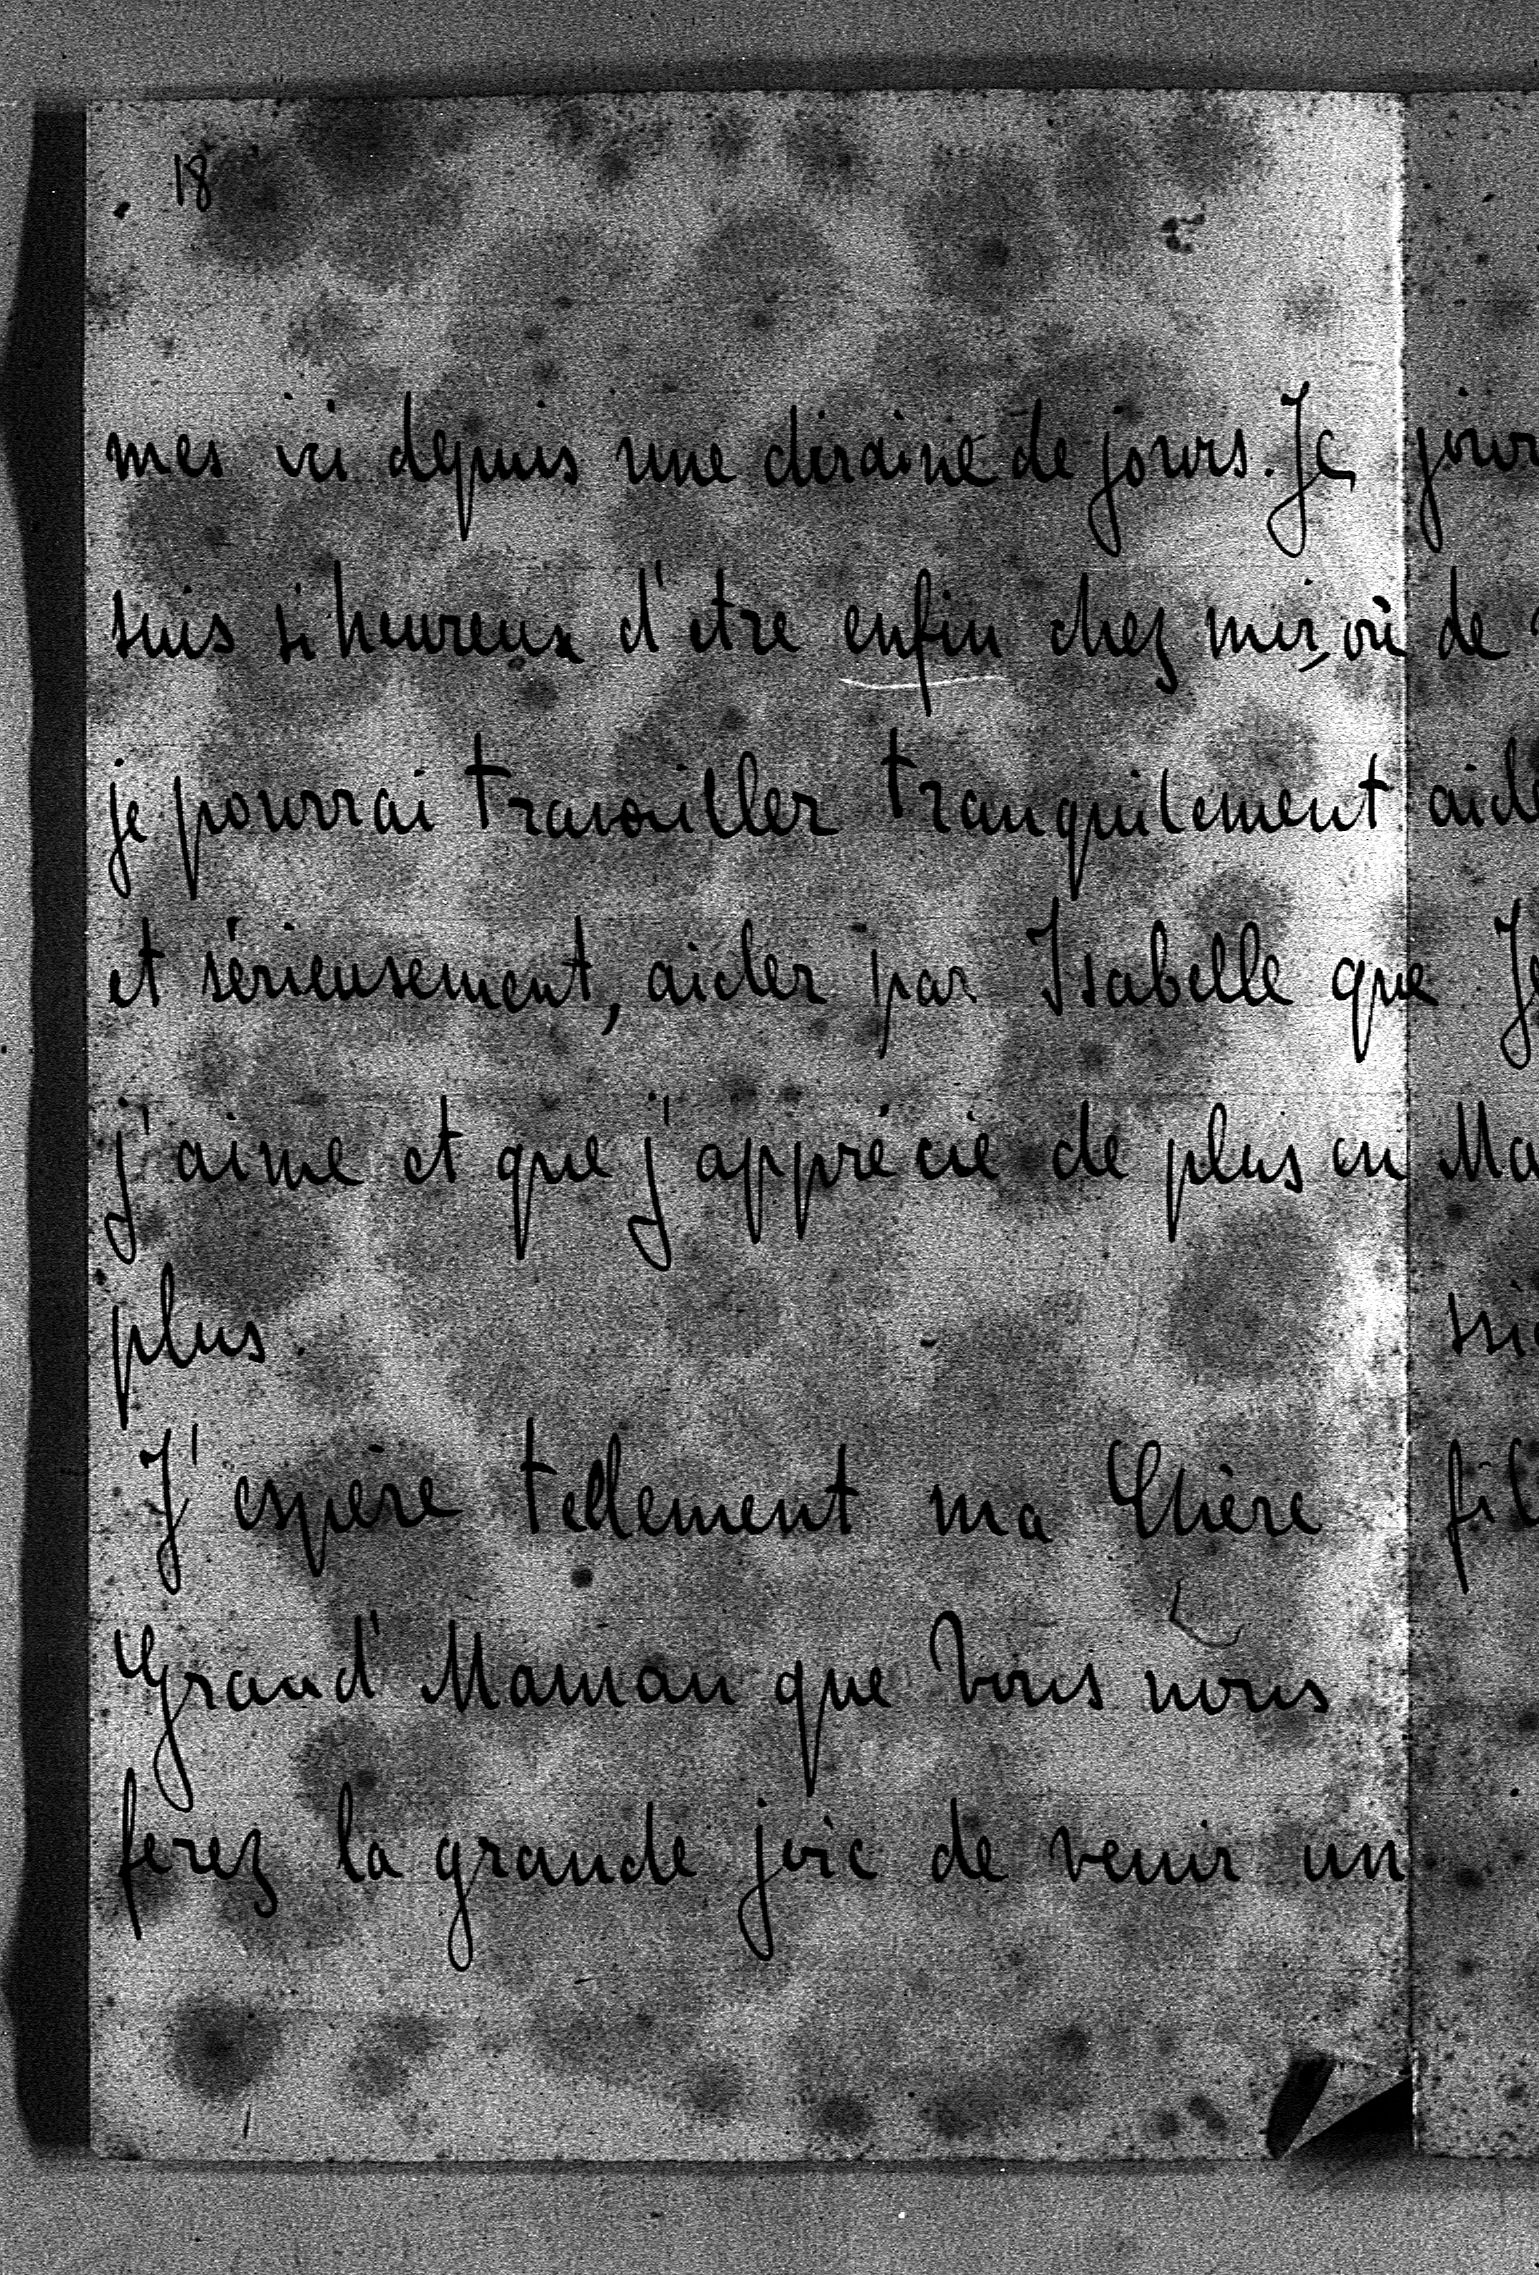 18
mes ici depuis une dizaine de jours. Je
suis si heureux d'etre enfin chez moi, où
je pourrai travailler tranquilement
et sérieusement, aider par Isabelle que
j'aime et que j'apprécie de plus en
plus.
J'espère tellement ma Chère
Grand'Maman que Vous nous
ferez la grande joie de venir un
de